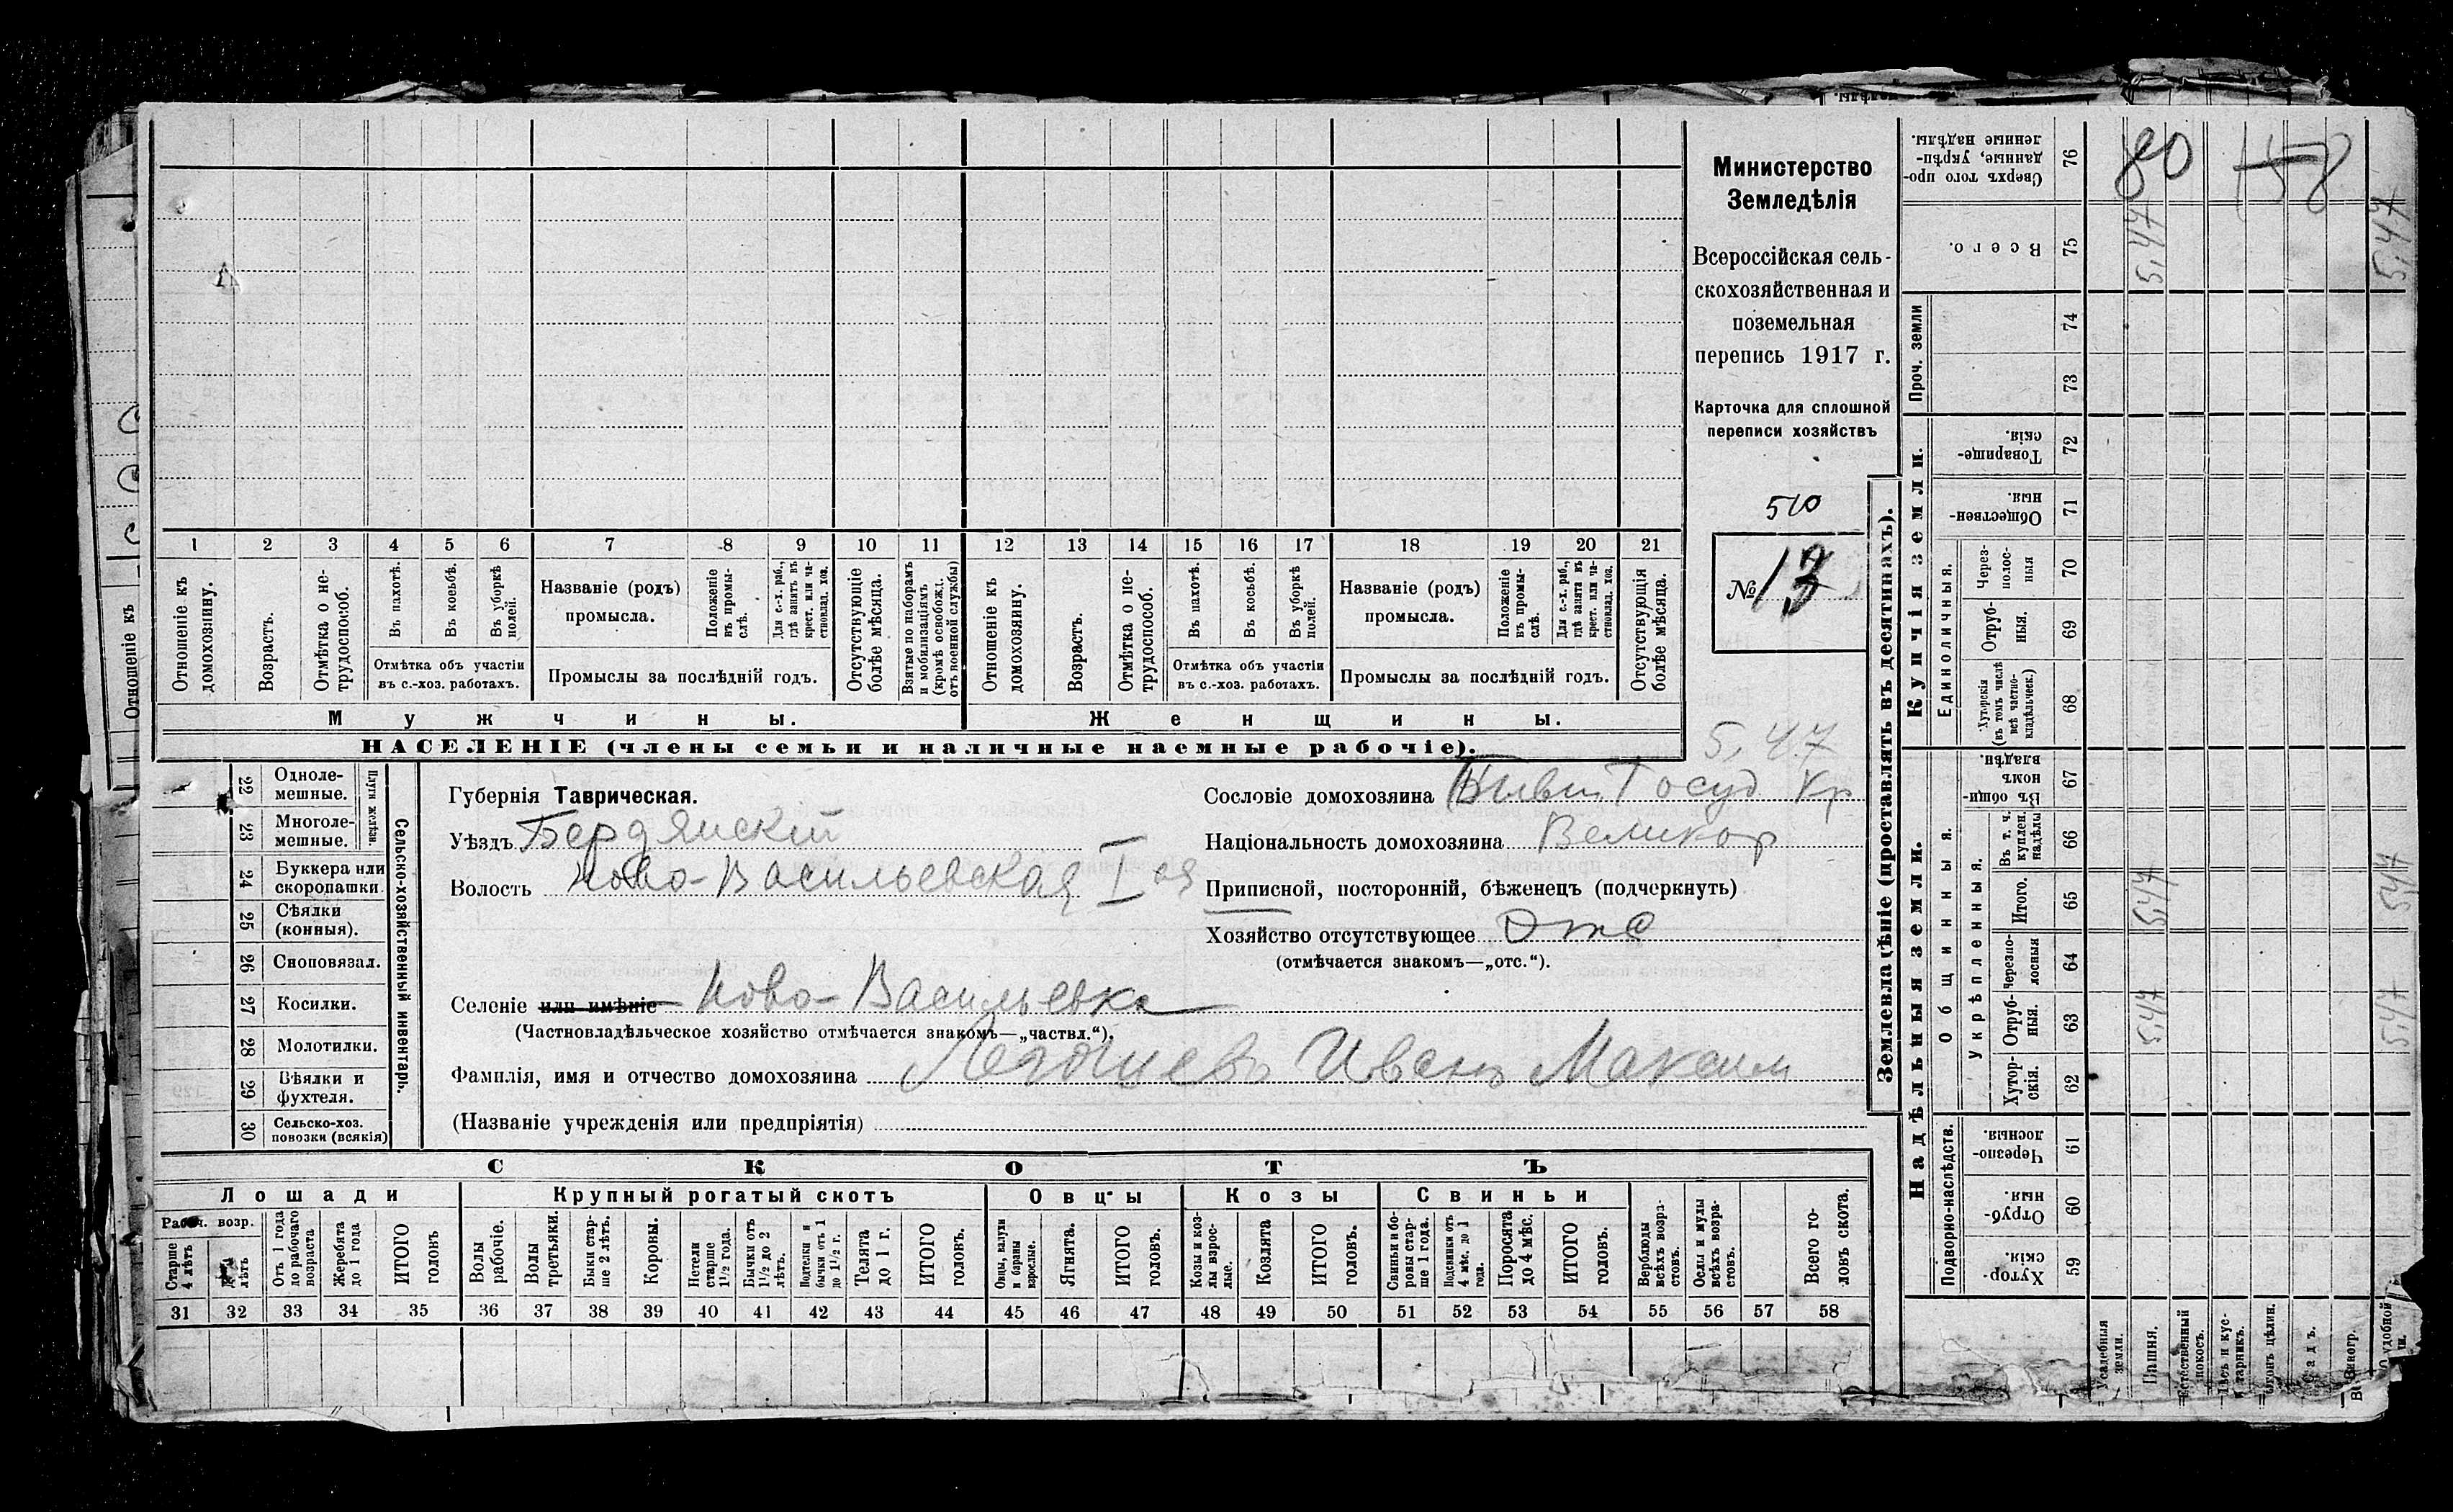 Министерство
Земледѣлія
Всероссійская сель-
скохозяйственная и
поземельная
перепись 1917 г.
Карточка для сплошной
переписи хозяйствъ
510
№ 13
1 2 3 4 5 6 7 8 9 10 11 12 13 14 15 16 17 18 19 20 21
Отношеніе къ домохозяину.
Возрастъ.
Отмѣтка о не-трудоспособ.
Въ пахотѣ.
Въ косьбѣ.
Въ уборкѣ полей.
Отмѣтка объ участіи въ с.-хоз. работахъ.
Названіе (родъ) промысла.
Положеніе въ промы-слѣ.
Для с.-х. раб., гдѣ занятъ въ крест. или ча-стновлад. хоз.
Промыслы за послѣдній годъ.
Отсутствующіе болѣе мѣсяца.
Взятые по наборамъ и мобилизаціямъ (кромѣ освобожд. отъ военной службы)
Отношеніе къ домохозяину.
Возрастъ.
Отмѣтка о не-трудоспособ.
Въ пахотѣ.
Въ косьбѣ.
Въ уборкѣ полей.
Отмѣтка объ участіи въ с.-хоз. работахъ.
Названіе (родъ) промысла.
Положеніе въ промы-слѣ.
Для с.-х. раб., гдѣ занятъ въ крест. или ча-стновлад. хоз.
Промыслы за послѣдній годъ.
Отсутствующія болѣе мѣсяца.
Мужчины.
Женщины.
НАСЕЛЕНІЕ (члены семьи и наличные наемные рабочіе).
5,47
Сельско-хозяйственный инвентарь.
Плуги желѣзн.
22 Одноле-мешные.
23 Многоле-мешные.
24 Буккера или скоропашки.
25 Сѣялки (конныя).
26 Сноповязал.
27 Косилки.
28 Молотилки.
29 Вѣялки и фухтеля.
30 Сельско-хоз. повозки (всякія)
Губернія Таврическая.
Уѣздъ Бердянскій
Волость Ново-Васильевская I ая
Сословіе домохозяина Бывш Госуд Кр
Національность домохозяина Великор
Приписной, посторонній, бѣженецъ (подчеркнуть)
Хозяйство отсутствующее Отс
(отмѣчается знакомъ—„отс.“).
Селеніе или имѣніе Ново-Васильевка
(Частновладѣльческое хозяйство отмѣчается знакомъ—„частвл.“).
Фамилія, имя и отчество домохозяина Иванъ Максим
(Названіе учрежденія или предпріятія)
СКОТЪ
Лошади
Крупный рогатый скотъ
Овцы
Козы
Свиньи
Рабоч. возр.
Старше 4 лѣтъ
лѣтъ
Отъ 1 года до рабочаго возраста
Жеребята до 1 года
ИТОГО головъ
Волы рабочіе.
Волы третьяки.
Быки стар-ше 2 лѣтъ.
Коровы.
Нетели старше 1½ года.
Бычки отъ 1½ до 2 лѣтъ.
Подтелки и бычки отъ 1 до 1½ г.
Телята до 1 г.
ИТОГО головъ.
Овцы, валухи и бараны взрослые.
Ягнята.
ИТОГО головъ.
Козы и коз-лы взрос-лые.
Козлята
ИТОГО головъ.
Свиньи и бо-ровы стар-ше 1 года.
Подсвинки отъ 4 мѣс. до 1 года.
Поросята до 4 мѣс.
ИТОГО головъ.
Верблюды всѣхъ возра-стовъ.
Ослы и мулы всѣхъ возра-стовъ.
Всего го-ловъ скота.
31 32 33 34 35 36 37 38 39 40 41 42 43 44 45 46 47 48 49 50 51 52 53 54 55 56 57 58
Землевладѣніе (проставлять въ десятинахъ).
Надѣльныя земли.
Купчія земли.
Проч. земли
Подворно-наслѣдств.
Общинныя.
Укрѣпленныя.
Единоличныя.
59 Хутор-скія.
60 Отруб-ныя.
61 Черезпо-лосныя.
62 Хутор-скія.
63 Отруб-ныя. 5,47 5,47
64 Черезпо-лосныя
65 Итого. 5,47 5,47
66 Въ т. ч. куплен. надѣлы
67 Въ общин-номъ владѣн.
68 Хуторскія (въ томъ числѣ всѣ частно-владѣльческ.)
69 Отруб-ныя.
70 Через-полос-ныя
71 Обществен-ныя
72 Товарище-скія.
73
74
75 Всего. 5,47 5,47
76 Сверхъ того про-данные, укрѣп-ленные надѣлы.
80 158
Усадебныя земли.
Пашня.
Естественный покосъ.
Лѣсъ и кус-тарникъ.
Садъ.
Виногр.
Отношеніе къ